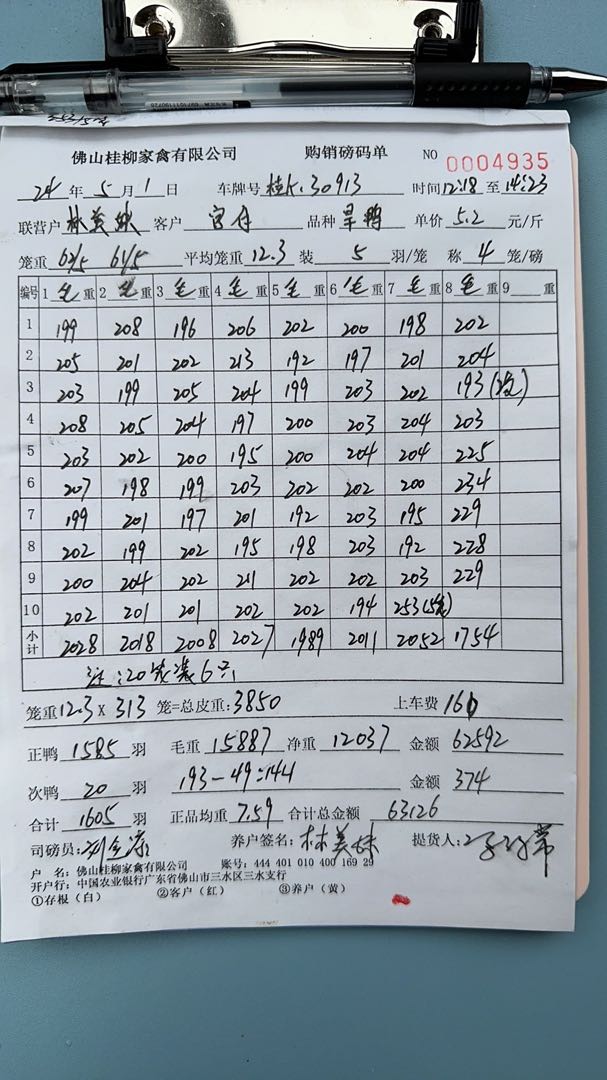 佛山桂柳家禽有限公司 购销磅码单 NO 0004935
24 年 5 月 1 日 车牌号 桂K.30913 时间 12:18 至 14:23
联营户 林美妹 客户 宫仔 品种 旱鸭 单价 5.2 元/斤
笼重 62/5 61/5 平均笼重 12.3 装 5 羽/笼 称 4 笼/磅
编号 1 毛 重 2 毛 重 3 毛 重 4 毛 重 5 毛 重 6 毛 重 7 毛 重 8 毛 重 9 重
1 199 208 196 206 202 200 198 202
2 205 201 202 213 192 197 201 204
3 203 199 205 204 199 203 202 193
4 208 205 204 197 200 203 204 203
5 203 202 200 195 200 204 204 225
6 207 198 199 203 202 202 200 234
7 199 201 197 201 192 203 195 229
8 202 199 202 195 198 203 192 228
9 200 204 202 211 202 202 203 229
10 202 201 201 202 202 194 253
小计 2028 2018 2008 2027 1989 2011 2052 1754
注:20笼装6只
笼重 12.3 X 313 笼=总皮重: 3850 上车费 160
正鸭 1585 羽 毛重 15887 净重 12037 金额 62592
次鸭 20 羽 193-49=144 金额 374
合计 1605 羽 正品均重 7.59 合计总金额 63126
司磅员: 养户签名: 林美妹 提货人:
户 名: 佛山桂柳家禽有限公司 账号: 444 401 010 400 169 29
开户行: 中国农业银行广东省佛山市三水区三水支行
①存根（白） ②客户（红） ③养户（黄）